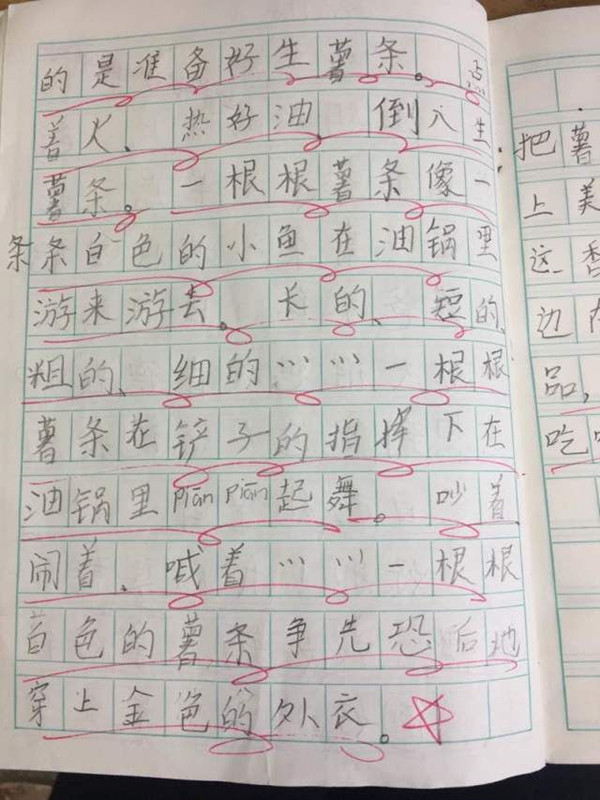 的是准备好生薯条。点
着火、热好油,倒入生
薯条。一根根薯条像一
条条白色的小鱼在油锅里
游来游去。长的、短的、
粗的、细的……一根根
薯条在铲子的指挥下在
油锅里pián pián起舞。吵着
闹着、喊着……一根根
白色的薯条争先恐后地
穿上金色的外衣。
把薯
上美
这香
边
品,
吃